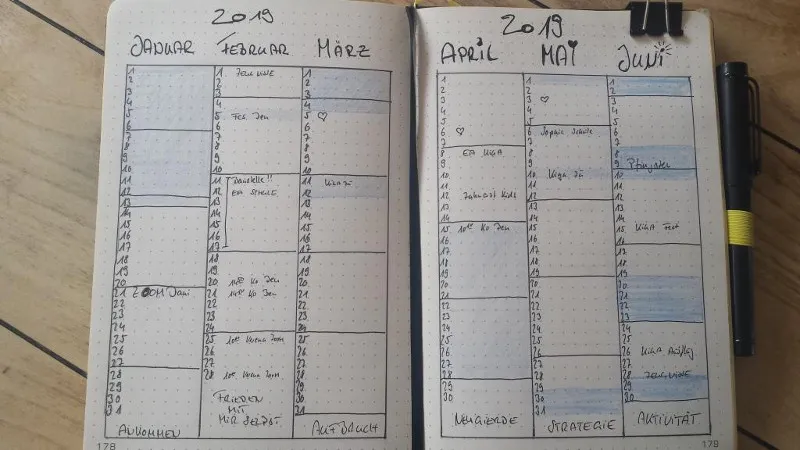 2019
JANUAR
1
2
3
4
5
6
7
8
9
10
11
12
13
14
15
16
17
18
19
20
21 ZOOM Jani
22
23
24
25
26
27
28
29
30
31
ANKOMMEN
FEBRUAR
1
2
3
4
5 Jen
6
7
8
9
10
11 Danielle!!
12 EA
13
14
15
16
17
18
19
20 Ko Jen
21 Ko Jen
22
23
24
25
26
27
28
FRIEDEN
MIT
MIR SELBST
MÄRZ
1
2
3
4
5 ♡
6
7
8
9
10
11 KiGa zu
12
13
14
15
16
17
18
19
20
21
22
23
24
25
26
27
28
29
30
31
AUFBRUCH
178
2019
APRIL
1
2
3
4
5
6 ♡
7
8 EA KiGA
9
10
11
12 Zahnarzt Kids
13
14
15 Ko Jen
16
17
18
19
20
21
22
23
24
25
26
27
28
29
30
NEUGIERDE
MAI
1
2
3 ♡
4
5
6 Sophie Schule
7
8
9
10 Kiga zu
11
12
13
14
15
16
17
18
19
20
21
22
23
24
25
26
27
28
29
30
31
STRATEGIE
JUNI
1
2
3
4
5
6
7
8
9 Pfingsten
10
11
12
13
14
15 KiGA Fest
16
17
18
19
20
21
22
23
24
25
26 KiGA Ausflug
27
28
29
30
AKTIVITÄT
179